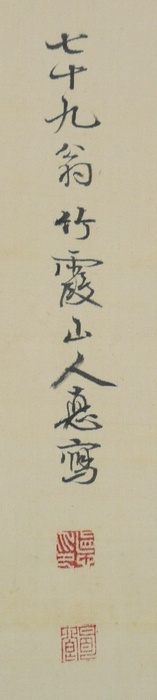 七十九翁竹霞山人惠寫